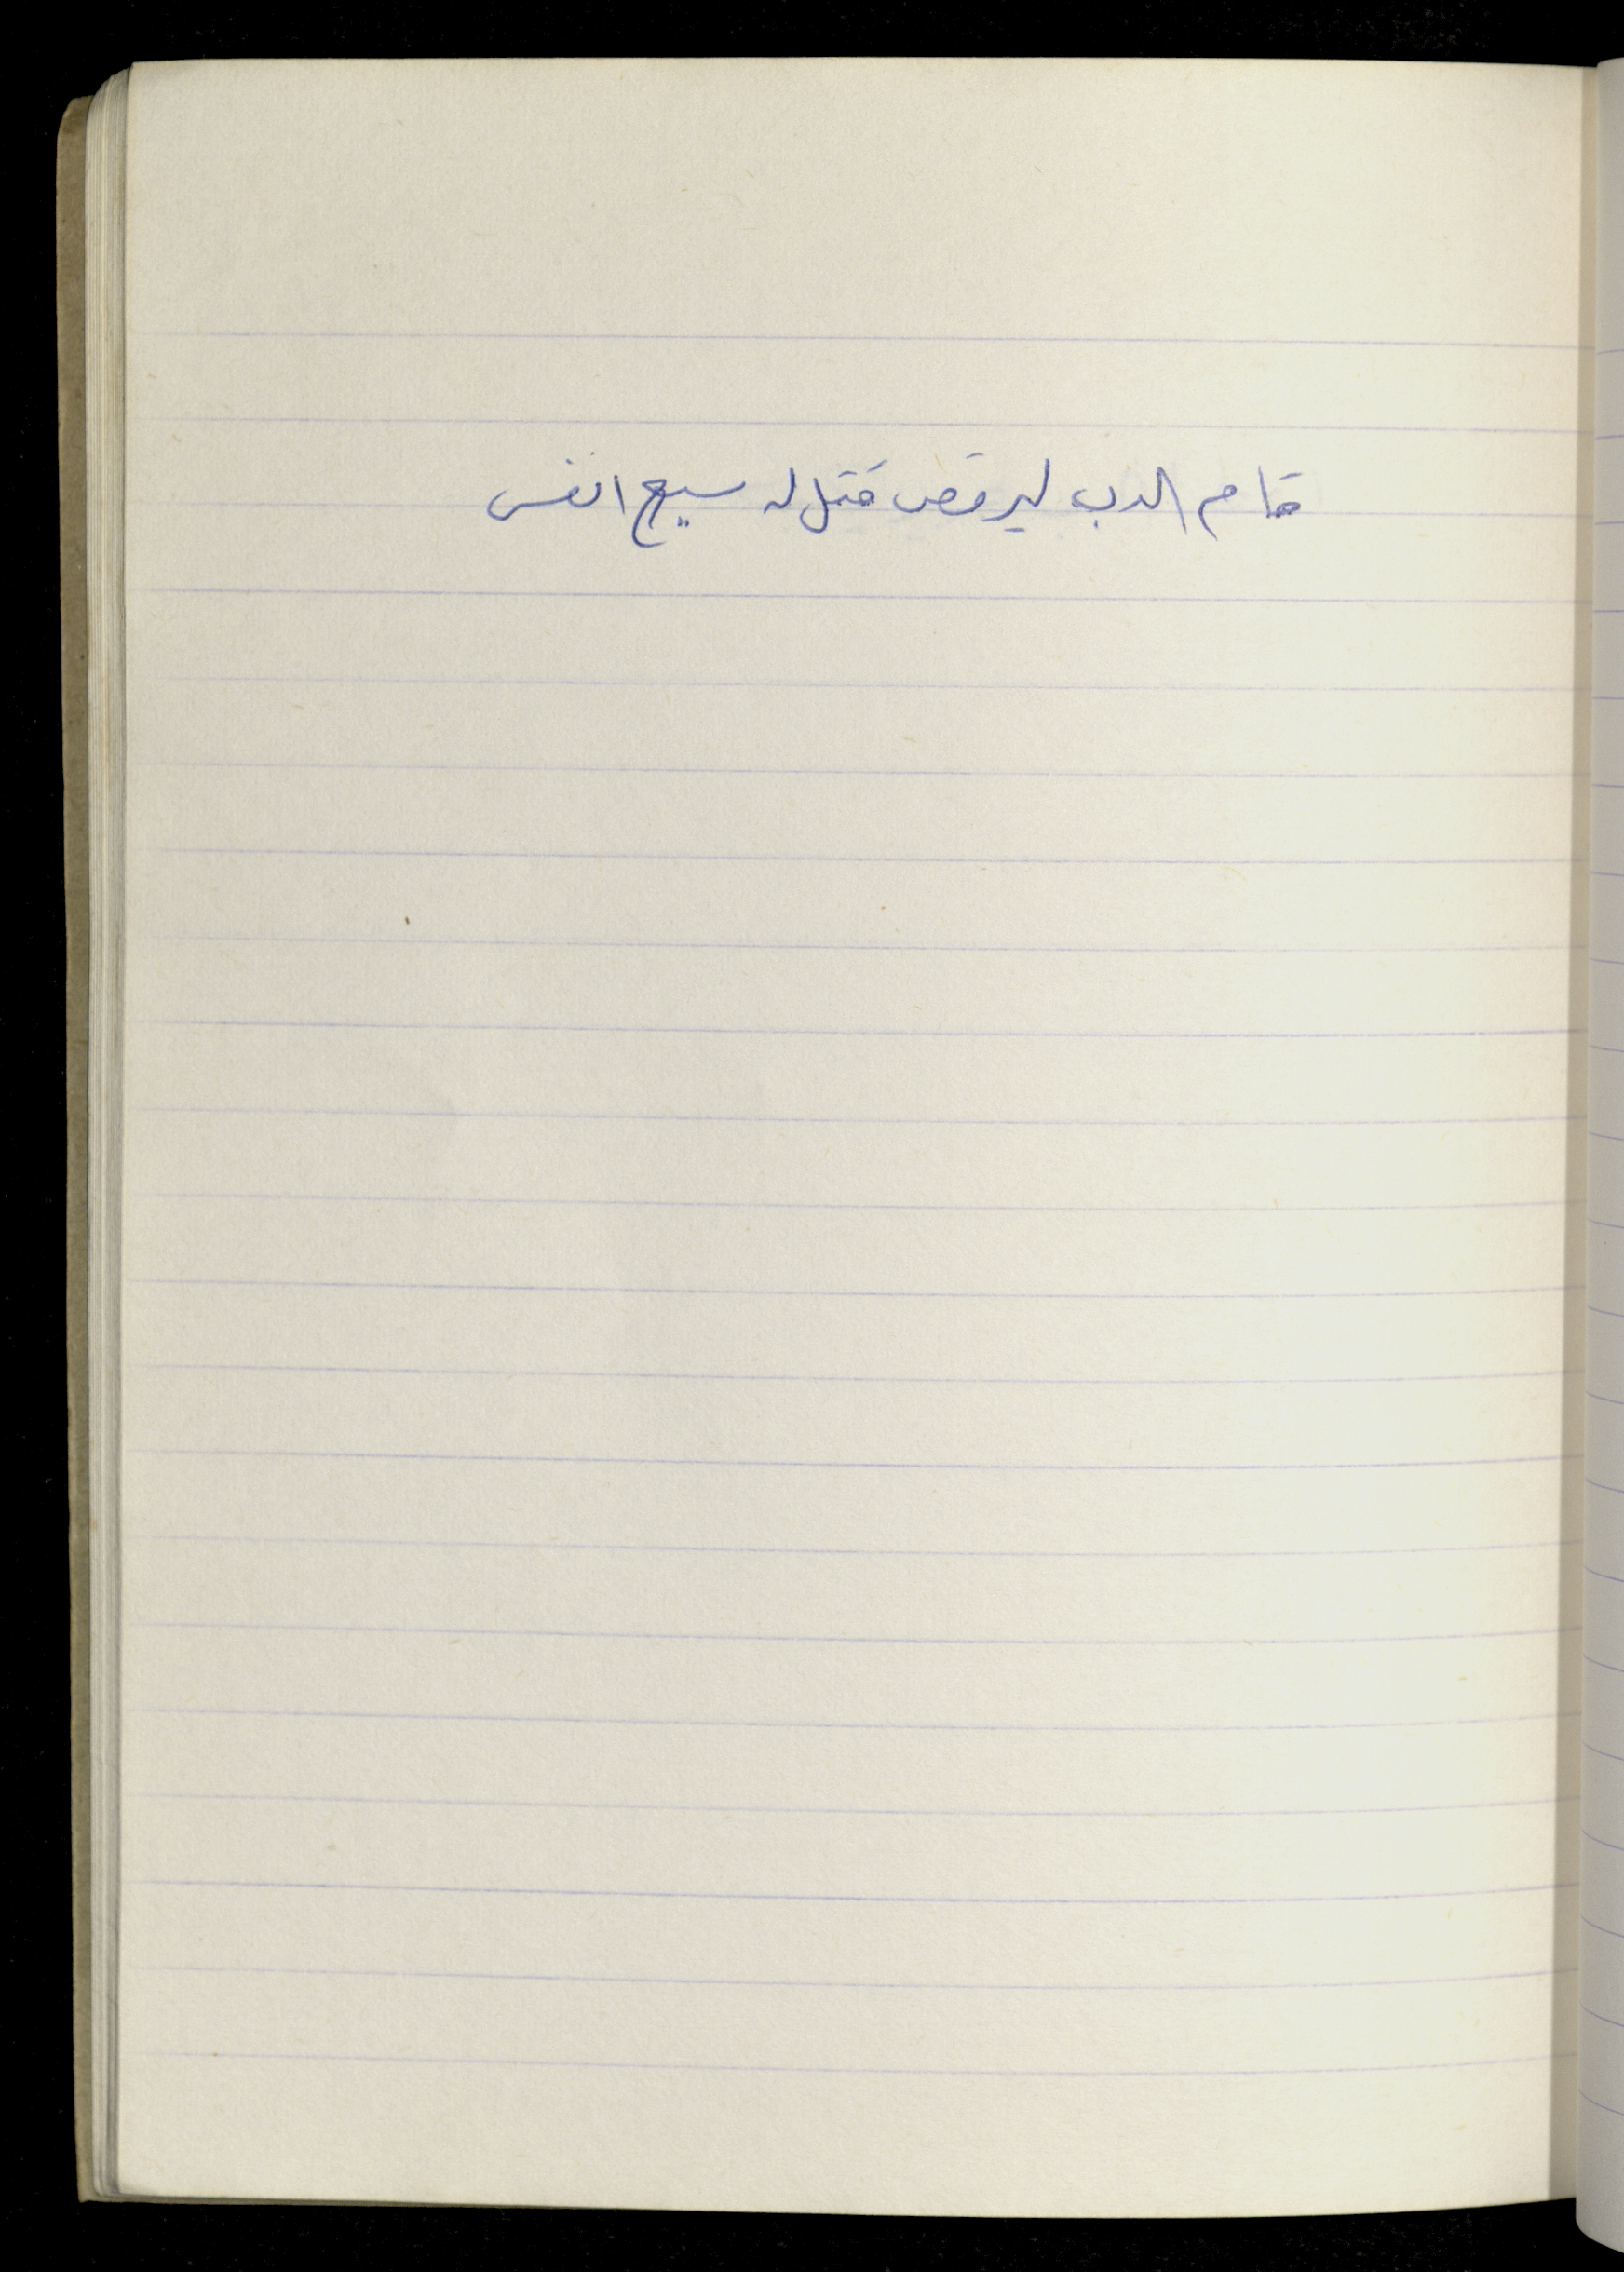 قام الدب ليرقص قتل له سبع انفس